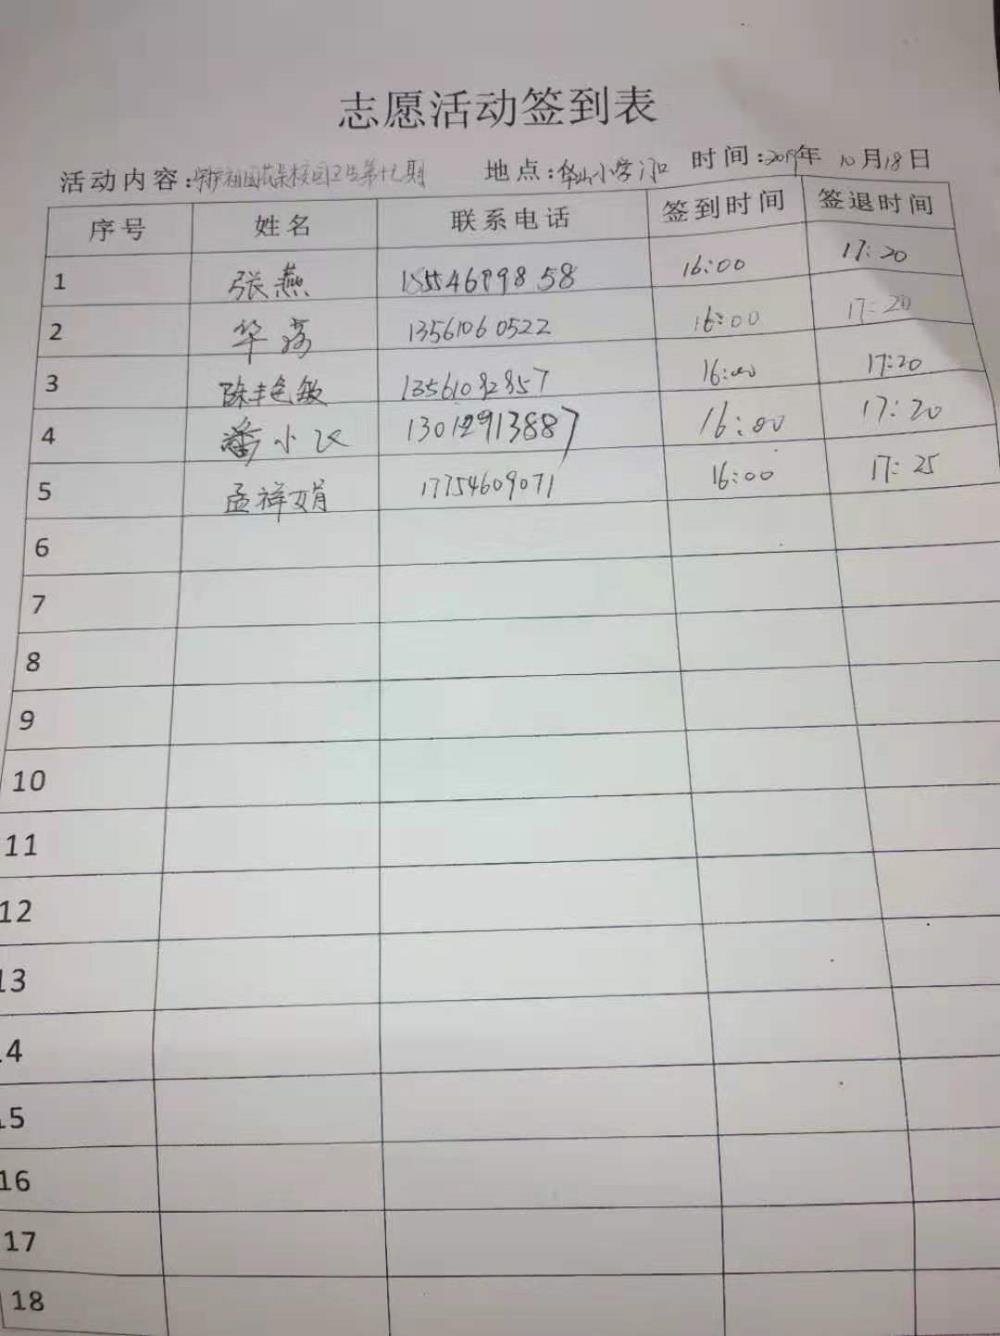 志愿活动签到表
活动内容:守护祖国花朵校园卫士第十七期 地点:华山小学门口 时间:2019年 10月18日
序号 姓名 联系电话 签到时间 签退时间
1 张燕 15546899858 16:00 17:20
2 华荔 13561060522 16:00 17:20
3 陈艳敏 1356182857 16:00 17:20
4 潘小飞 13012913887 16:00 17:20
5 孟祥娟 17754609071 16:00 17:25
6
7
8
9
10
11
12
13
14
15
16
17
18